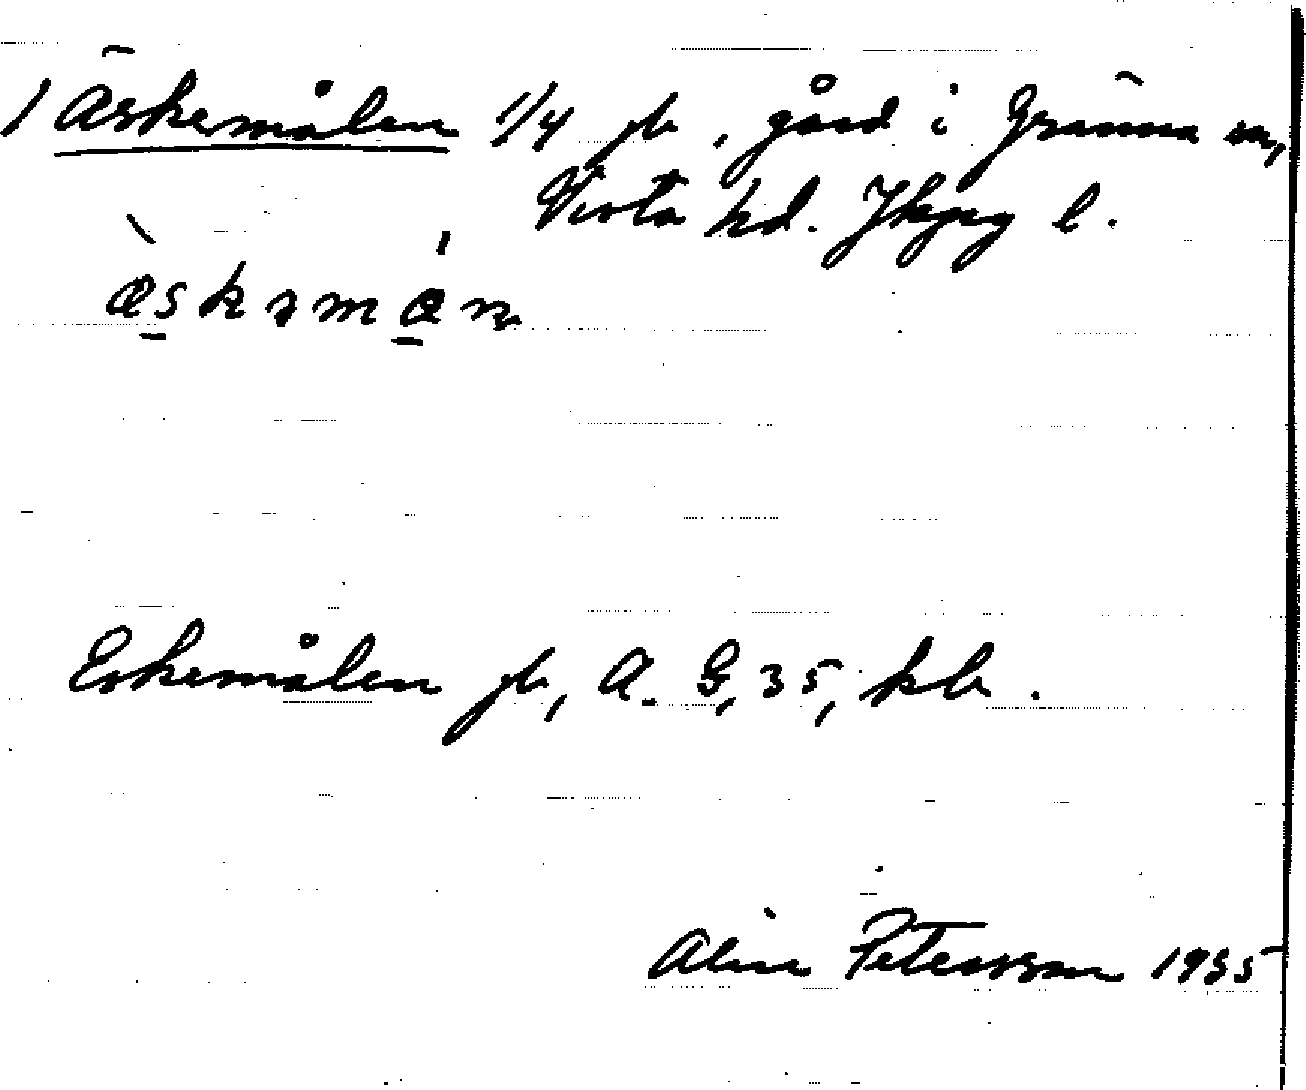 1 Äskemålen 1/4 jb, gård i Gränna sn,
Vista hd. Jkpg l.
æ̀skəmǽn
Eskemålen jb, A. G, 35, kb.
Aline Petersson 1935